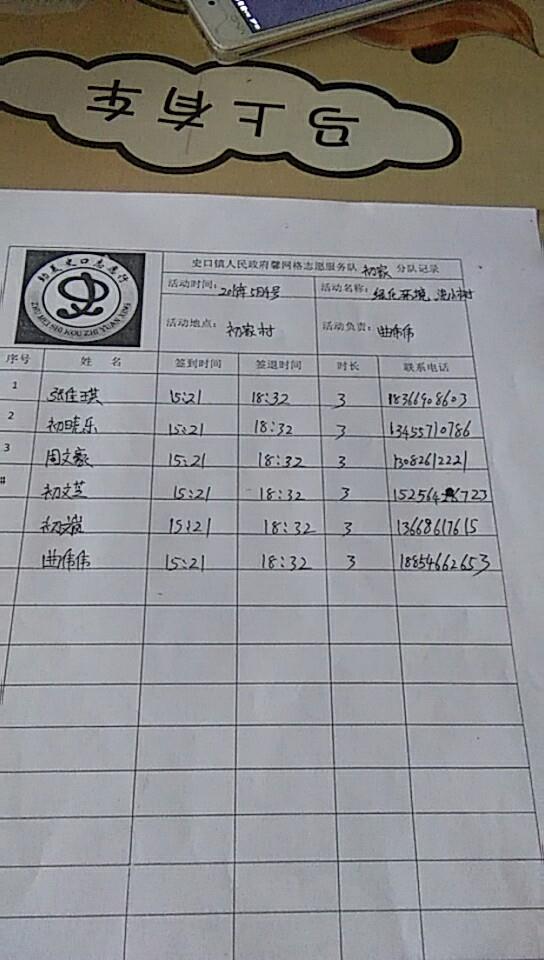 马上有车
助美史口志愿行
ZHU MEI SHI KOU ZHI YUAN XING
史口镇人民政府馨网格志愿服务队 初家 分队记录
活动时间: 活动名称:
活动地点: 初家村 活动负责: 曲伟伟
序号 姓 名 签到时间 签退时间 时长 联系电话
1 张佳琪 15:21 18:32 3 18366908603
2 初晓乐 15:21 18:32 3 13455710786
3 周文豪 15:21 18:32 3 13082612221
# 初文芝 15:21 18:32 3 152564 6723
15:21 18:32 3 13668617615
曲伟伟 15:21 18:32 3 18854662653